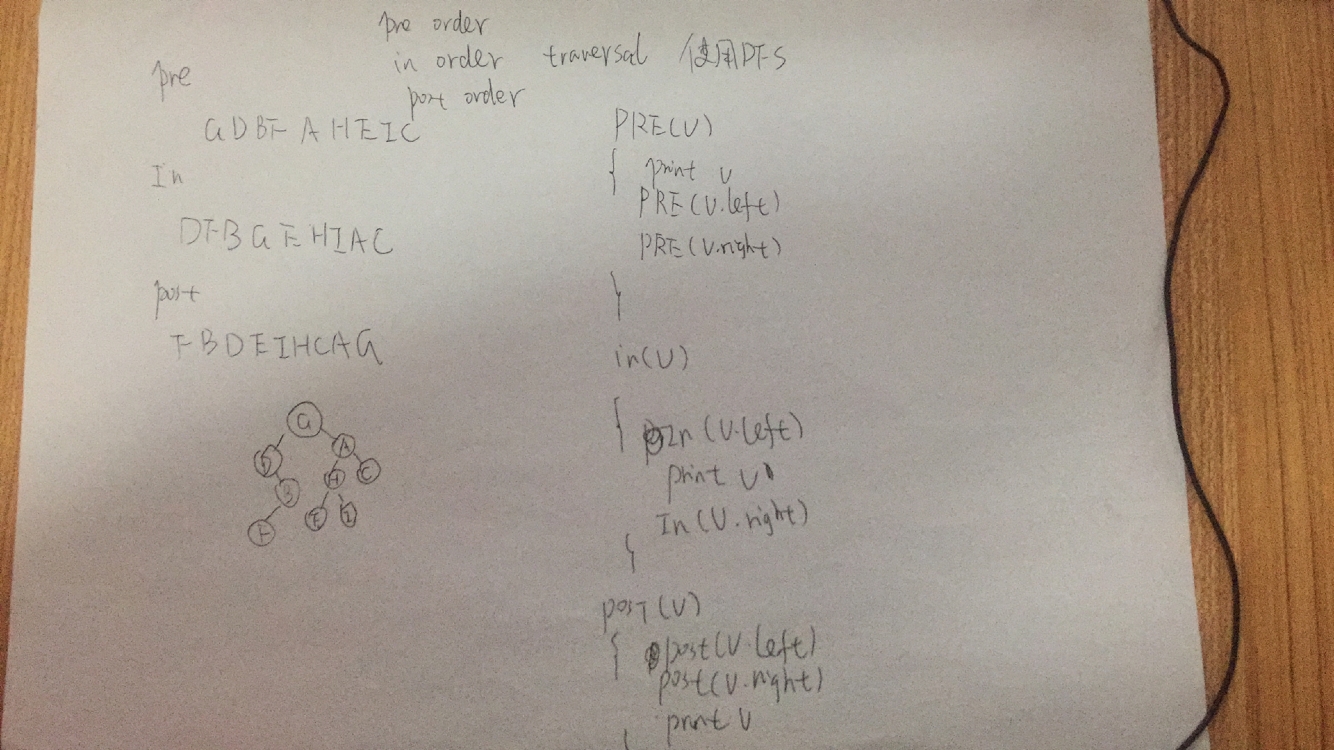 pre order
in order traversal 使用DFS
post order
pre
GDBFAHEIC
In
DFBGEHIAC
post
FBDEIHCAG
G
D
A
B
H
C
F
E
I
PRE(V)
{ print v
PRE(V.left)
PRE(V.right)
}
in(V)
{ In(V.left)
print v
In(V.right)
}
post(V)
{ post(V.left)
post(V.right)
print v
}